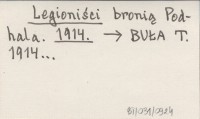 Legioniści bronią Pod-
hala. 1914. → BUŁA T.
1914...